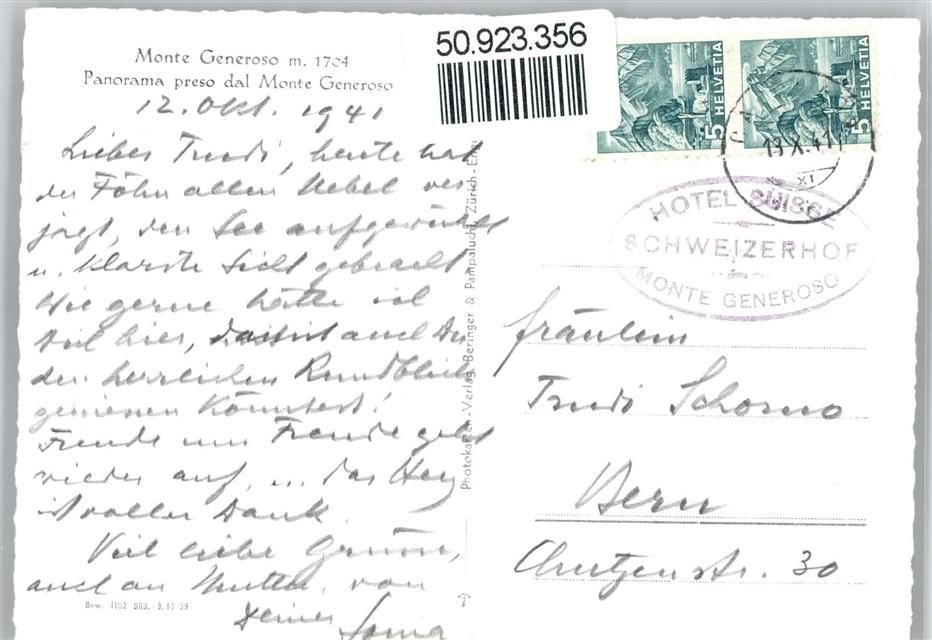 Monte Generoso m. 1704
Panorama preso dal Monte Generoso
12. Okt. 1941
Liebes Trudi, heute hat
der Föhn allen Nebel ver-
jagt, den See aufgewühlt
u. klarste Sicht gebracht.
Wie gerne hätte ich
Dich hier, damit auch Du
den herrlichen Rundblick
geniessen könntest!
Freude um Freude geht
wieder auf, ... das Herz
ist voller Dank.
Viel liebe Grüsse,
auch an Mutter, von
Deiner
Bew. 1102 BRB. 3.10.39
Photokarten-Verlag Beringer & Pampaluchi, Zürich-
50.923.356
5 HELVETIA
5 HELVETIA
13.X.41
XI
HOTEL SUISSE
SCHWEIZERHOF
MONTE GENEROSO
Fräulein
Trudi Schorno
Bern
Chutzenstr. 30